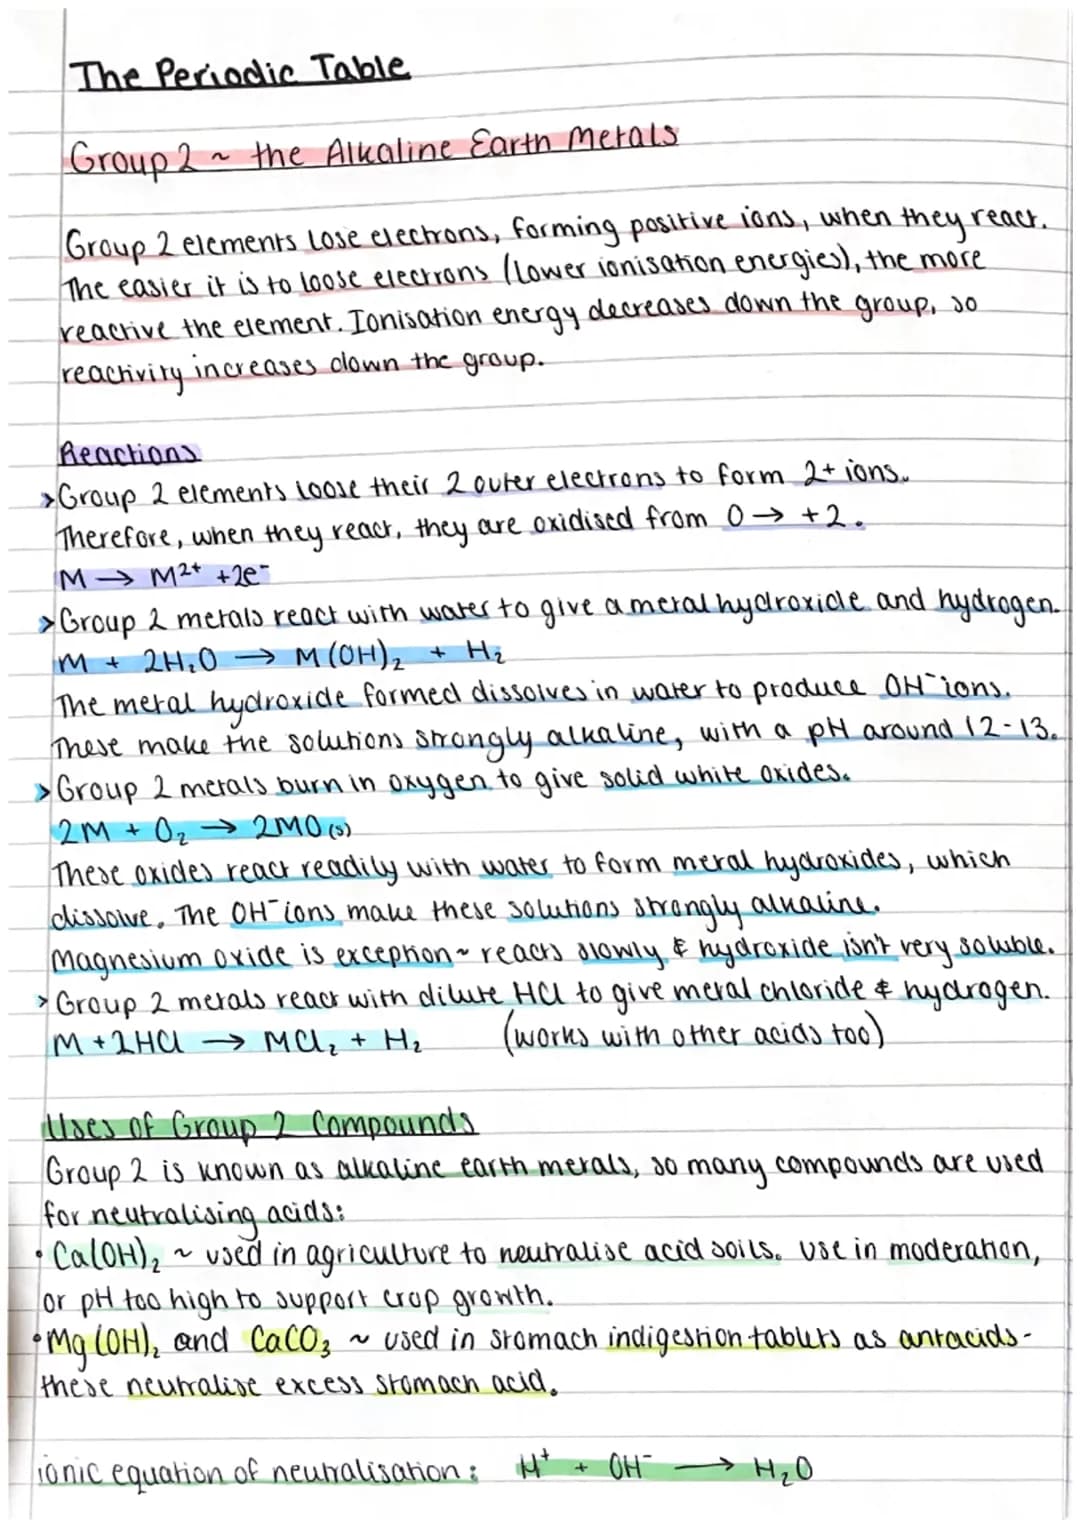 The Periodic Table
Group 2 ~ the Alkaline Earth Metals
Group 2 elements lose electrons, forming positive ions, when they react.
The easier it is to loose electrons (lower ionisation energies), the more
reactive the element. Ionisation energy decreases down the group, so
reactivity increases down the group.
Reactions
> Group 2 elements loose their 2 outer electrons to form 2+ ions.
Therefore, when they react, they are oxidised from 0 → +2.
M → M²⁺ + 2e⁻
> Group 2 metals react with water to give a metal hydroxide and hydrogen.
M + 2H₂O → M(OH)₂ + H₂
The metal hydroxide formed dissolves in water to produce OH⁻ ions.
These make the solutions strongly alkaline, with a pH around 12-13.
> Group 2 metals burn in oxygen to give solid white oxides.
2M + O₂ → 2MO (s)
These oxides react readily with water to form metal hydroxides, which
dissolve. The OH⁻ ions make these solutions strongly alkaline.
Magnesium oxide is exception ~ reacts slowly & hydroxide isn't very soluble.
> Group 2 metals react with dilute HCl to give metal chloride & hydrogen.
M + 2HCl → MCl₂ + H₂ (works with other acids too)
Uses of Group 2 Compounds
Group 2 is known as alkaline earth metals, so many compounds are used
for neutralising acids:
• Ca(OH)₂ ~ used in agriculture to neutralise acid soils. Use in moderation,
or pH too high to support crop growth.
• Mg(OH)₂ and CaCO₃ ~ used in stomach indigestion tablets as antacids -
these neutralise excess stomach acid.
ionic equation of neutralisation: H⁺ + OH⁻ → H₂O